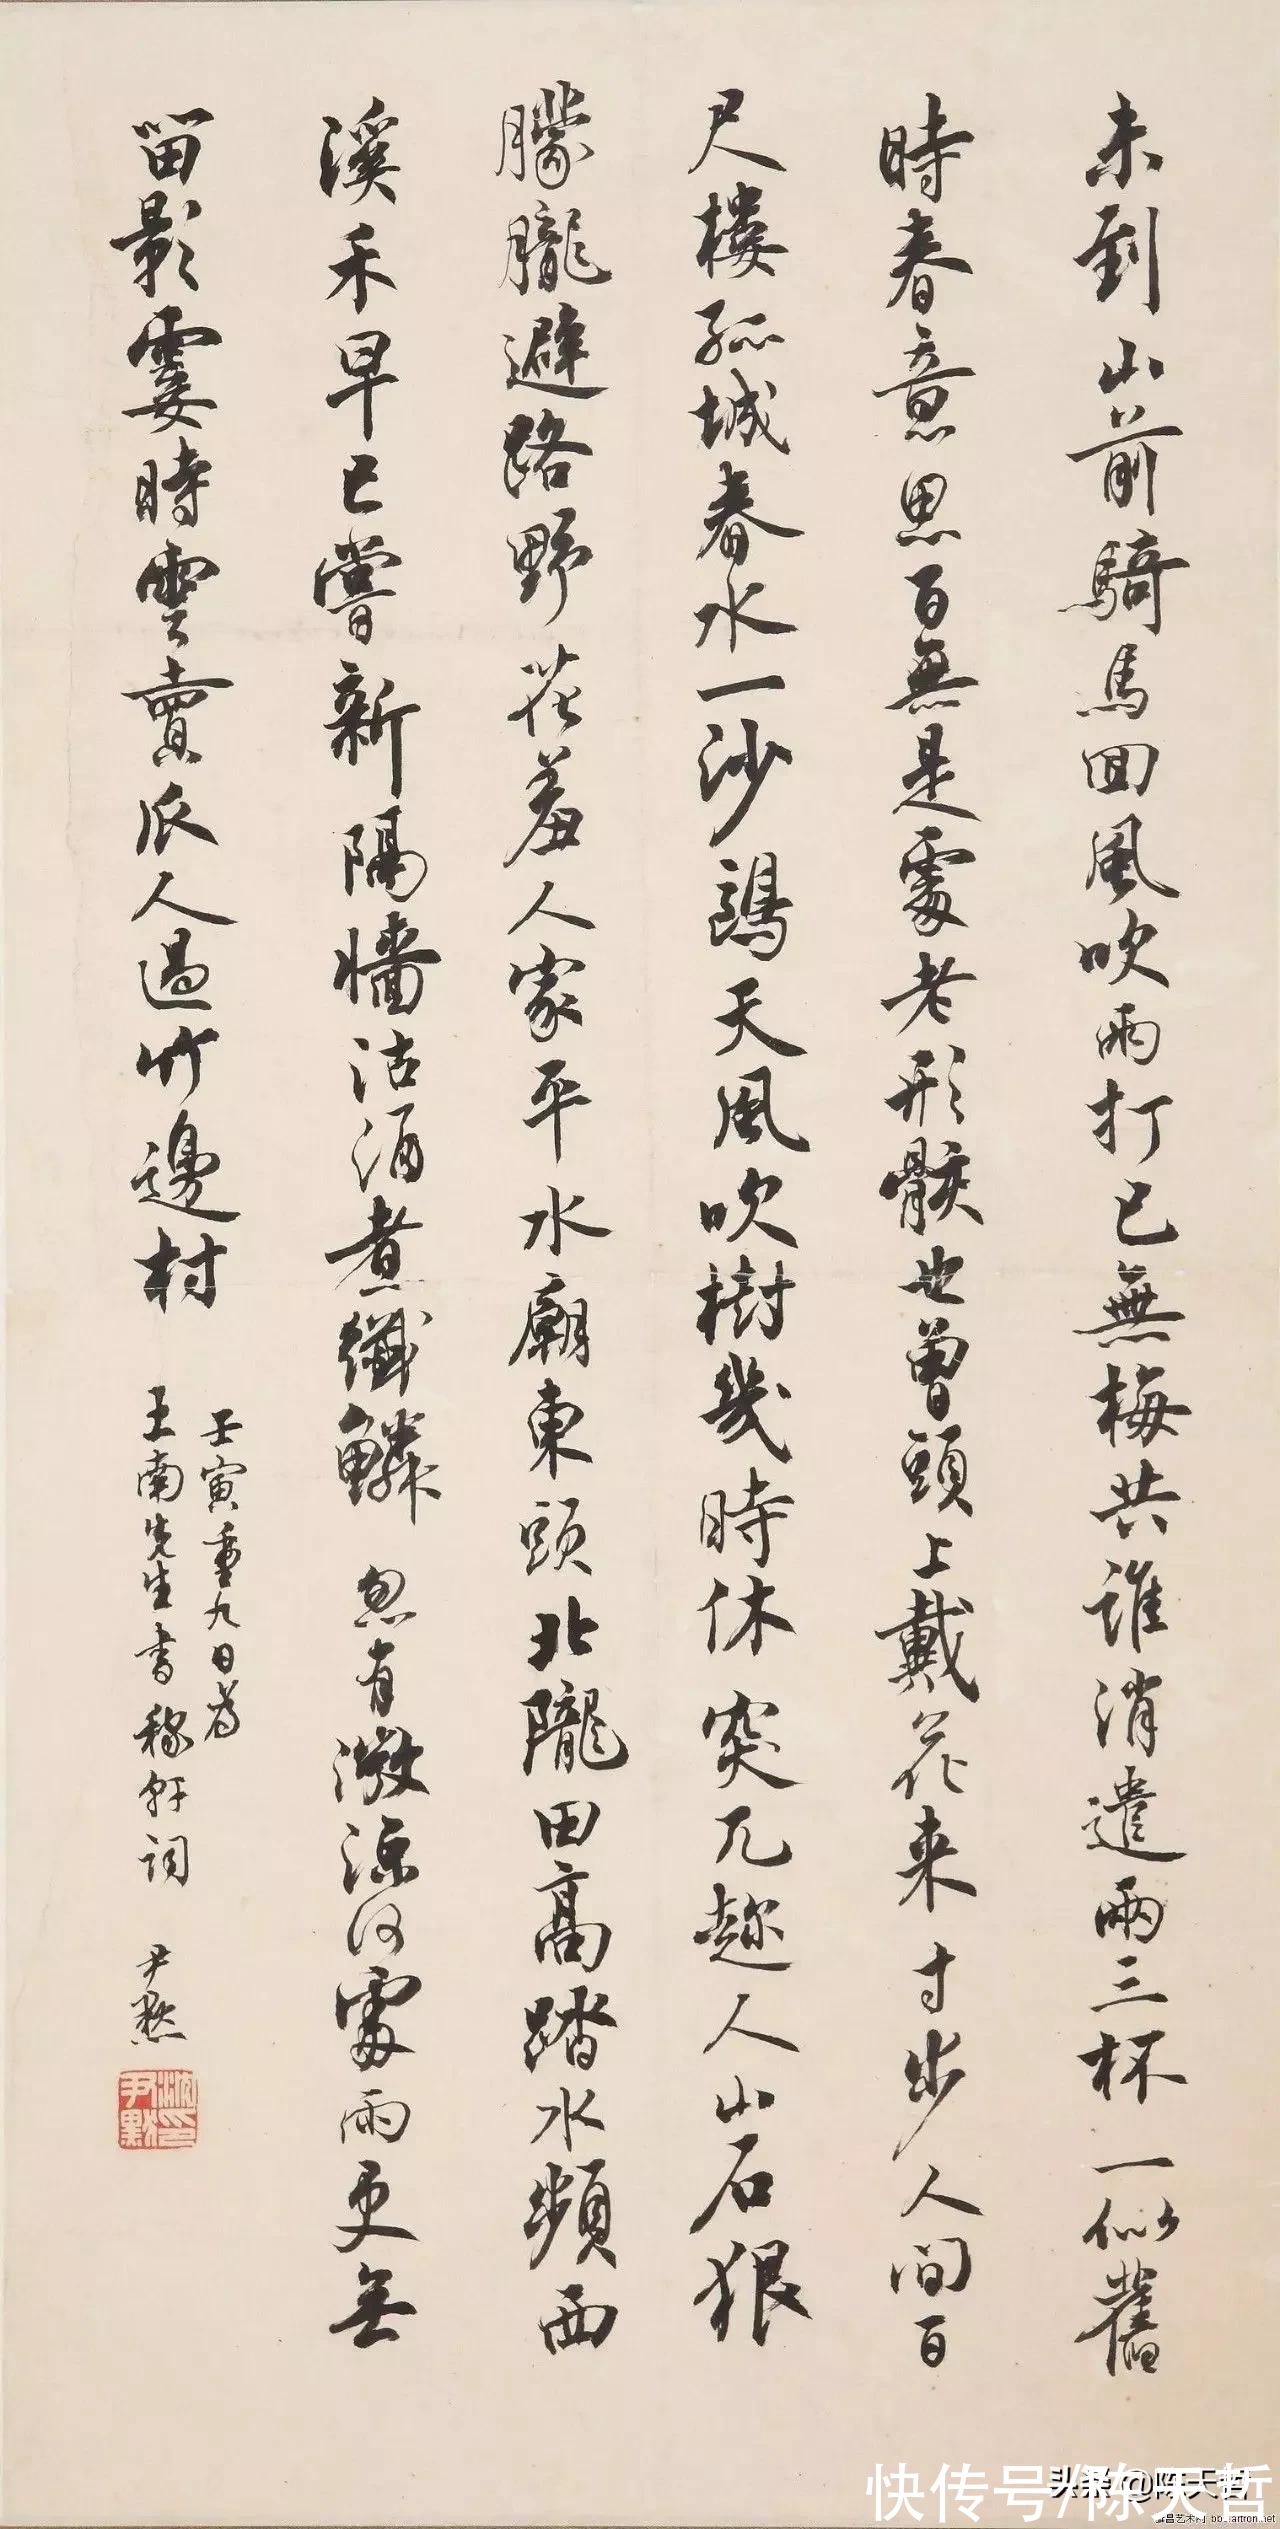 未到山前騎馬回風吹雨打已無梅共誰消遣兩三杯一似舊
時春意思百無是處老形骸也曾頭上戴花来寸步人間百
尺樓孤城春水一沙鷗天風吹樹幾時休突兀趁人山石狠
朦朧避路野花羞人家平水廟東頭北隴田高踏水頻西
溪禾早已嘗新隔牆沽酒煮纖鱗忽有微涼何處雨更無
留影霎時雲賣瓜人過竹邊村
壬寅重九日为
玉南先生書稼軒詞 尹默
沈尹默印
头条@陈天哲
快传号/陈天哲